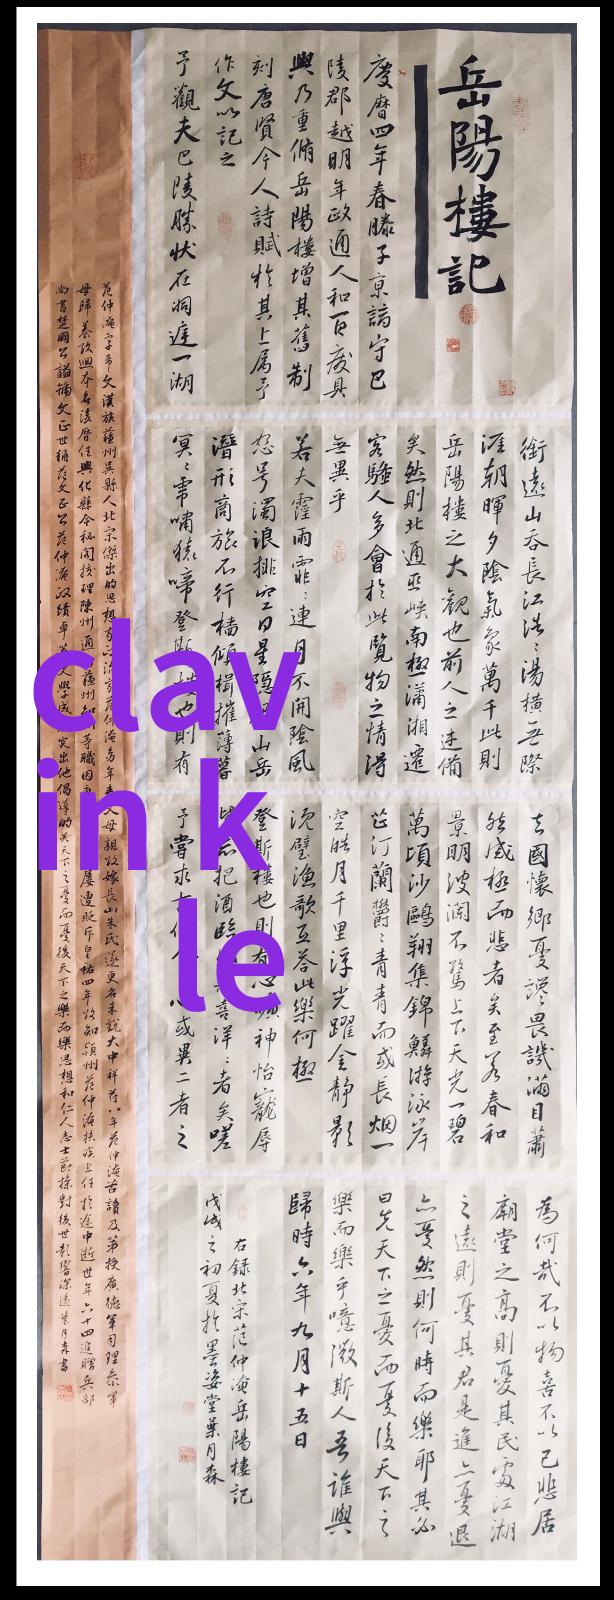 岳陽樓記
慶曆四年春滕子京謫守巴
陵郡越明年政通人和百廢具
興乃重脩岳陽樓增其舊制
刻唐賢今人詩賦於其上屬予
作文以記之
予觀夫巴陵勝狀在洞庭一湖
銜遠山吞長江浩〻湯橫無際
涯朝暉夕陰氣象萬千此則
岳陽樓之大觀也前人之述備
矣然則北通巫峽南極瀟湘遷
客騷人多會於此覽物之情得
無異乎
若夫霪雨霏〻連月不開陰風
怒号濁浪排空日星隱山岳
潛形商旅不行檣傾楫摧薄暮
冥〻虎嘯猿啼登斯樓也則有
去國懷鄉憂讒畏譏滿目蕭
然感極而悲者矣至若春和
景明波瀾不驚上下天光一碧
萬頃沙鷗翔集錦鱗游泳岸
芷汀蘭鬱〻青青而或長烟一
空皓月千里浮光躍金靜影
沉璧漁歌互答此樂何極
登斯樓也則有心曠神怡寵辱
皆忘把酒臨喜洋〻者矣嗟
予嘗求古仁人心或異二者之
為何哉不以物喜不以己悲居
廟堂之高則憂其民處江湖
之遠則憂其君是進亦憂退
亦憂然則何時而樂耶其必
曰先天下之憂而憂後天下之
樂而樂乎噫微斯人吾誰與
歸時六年九月十五日
右録北宋范仲淹岳陽樓記
戊戌之初夏於墨姿堂葉月森
范仲淹字希文漢族蘇州吳縣人北宋傑出的思想家范仲淹多年喪父母親改嫁長山朱氏遂更名朱說大中祥符八年范仲淹苦讀及第授廣德軍司理參軍
母歸養改回本名後曆任興化縣令秘閣校理陳州通判蘇州知州等職因屢遭貶斥皇祐四年改知潁州范仲淹扶疾上任於途中逝世年六十四追贈兵部
尚書楚國公謚號文正世稱范文正公范仲淹政績卓著文學成就突出他倡導的先天下之憂而憂後天下之樂而樂思想和仁人志士節操對後世影響深遠葉月森書
clav
in k
le